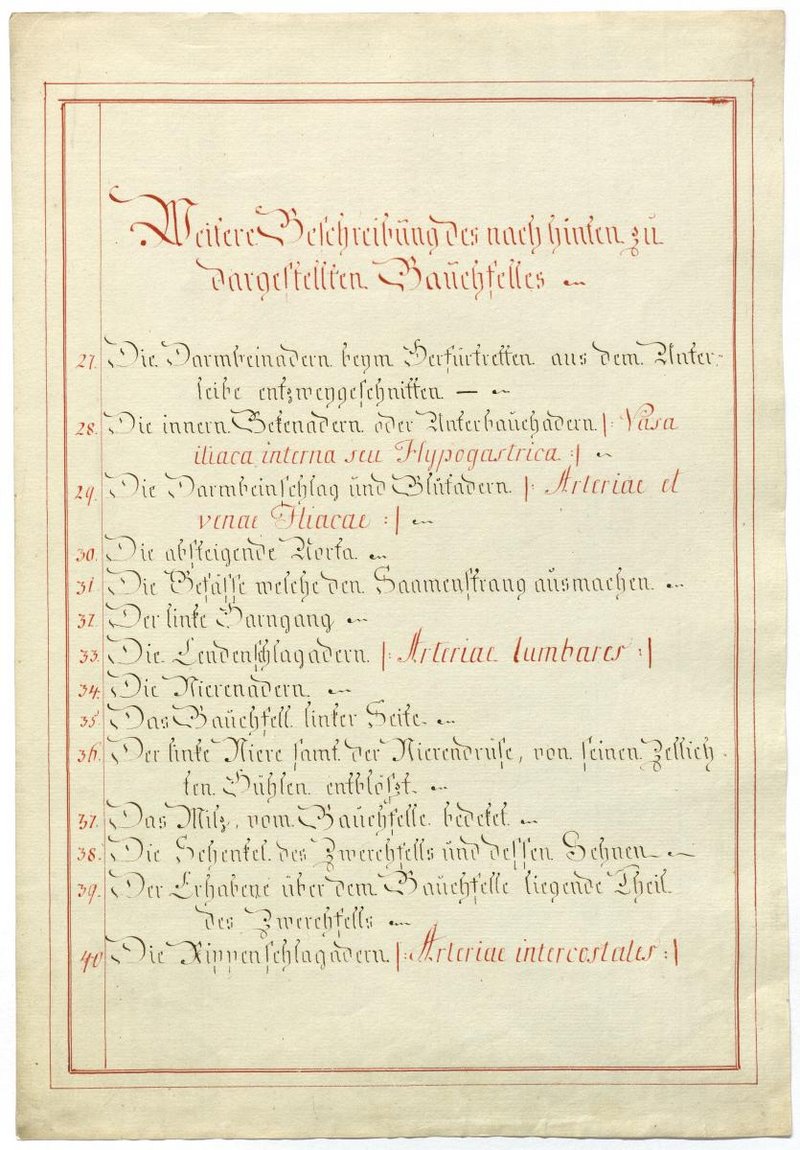 Weitere Beschreibüng des nach hinten zü
dargestellten Baüchfelles
27. Die Darmbeinadern beym Herfürtretten aus dem Unter-
leibe entzweygeschnitten. —
28. Die innern Bekenadern oder Unterbaüchadern |: Vasa
iliaca interna seu Hypogastrica :|
29. Die Darmbeinschlag ünd Blütadern. |: Arteriae et
venae Iliacae :|
30. Die absteigende Aorta.
31. Die Gefässe welche den Saamenstrang aüsmachen.
32. Der linke Harngang
33. Die Lendenschlagadern. |: Arteriae lumbares :|
34. Die Nierenadern.
35. Das Baüchfell linker Seite
36. Der linke Niere samt der Nierendrüse, von seinen Zellich-
ten Hühlen entblöszt.
37. Das Milz, vom Baüchfelle bedeket.
38. Die Schenkel des Zwerchfells ünd dessen Sehnen
39. Der Erhabene über dem Baüchfelle liegende Theil
des Zwerchfells
40 Die Rippenschlagadern. |: Arteriae intercostales :|